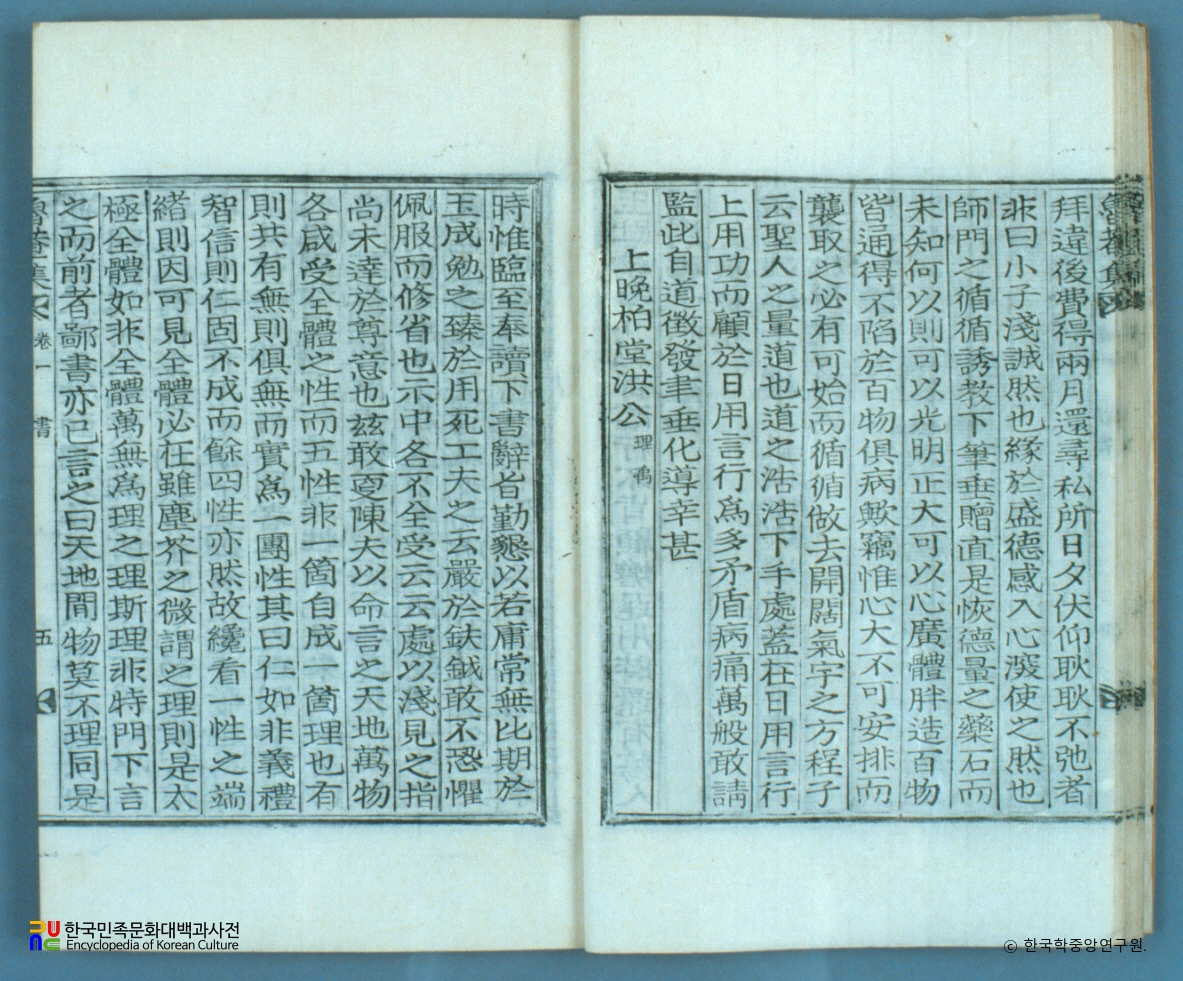 拜違後費得兩月還尋私所日夕伏仰耿耿不弛者
非曰小子淺誠然也緣於盛德感入心溲使之然也
師門之循循誘教下筆垂贈直是恢德量之藥石而
未知何以則可以光明正大可以心廣體胖造百物
皆通得不陷於百物俱病歟竊惟心大不可安排而
襲取之必有可始而循循做去開闊氣宇之方程子
云聖人之量道也道之浩浩下手處蓋在日用言行
上用功而顧於日用言行爲多矛盾病痛萬般敢請
監此自道徵發聿垂化導幸甚
上晩柏堂洪公理禹
時惟臨至奉讀下書辭旨勤懇以若庸常無比期於
玉成勉之臻於用死工夫之云嚴於鈇鉞敢不恐懼
佩服而修省也示中各不全受云云處以淺見之指
尚未達於尊意也茲敢更陳夫以命言之天地萬物
各咸受全體之性而五性非一箇自成一箇理也有
則共有無則俱無而實爲一團性其曰仁如非義禮
智信則仁固不成而餘四性亦然故纔看一性之端
緒則因可見全體必在雖塵芥之微謂之理則是太
極全體如非全體萬無爲理之理斯理非特門下言
之而前者鄙書亦已言之曰天地間物莫不理同是
魯菴集 卷一 書 五
한국민족문화대백과사전
Encyclopedia of Korean Culture
© 한국학중앙연구원.